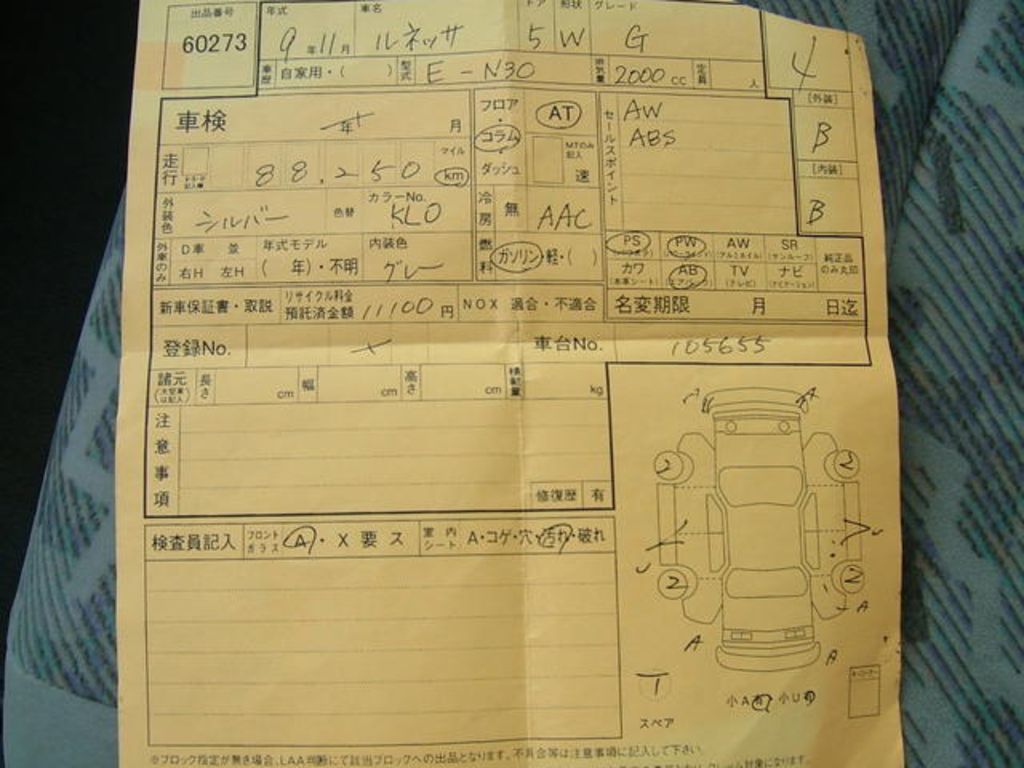 出品番号 年式 車名 ドア 形状 グレード
60273 9年11月 ルネッサ 5 W G 4
車歴 自家用・( ) 型式 E-N30 排気量 2000cc 定員 人
[外装]
B
[内装]
B
車検 年 月
フロア・コラム・ダッシュ AT MTのみ記入 速
セールスポイント AW
ABS
走行 88,250 マイル km
外装色 シルバー 色替 カラーNo. KL0
冷房 無 AAC
燃料 ガソリン・軽・( )
外車のみ D車 並 年式モデル 内装色
右H 左H ( 年)・不明 グレー
PS PW AW SR 純正品のみ丸印
(アルミホイル) (サンルーフ)
カワ AB TV ナビ
(本革シート) (エアバック) (テレビ) (ナビゲーション)
新車保証書・取説 リサイクル料金預託済金額 11100円 NOX 適合・不適合 名変期限 月 日迄
登録No. 車台No. 105655
諸元 (大型車は記入) 長さ cm 幅 cm 高さ cm 積載量 kg
注意事項
修復歴 有
検査員記入 フロントガラス A・X 要 ス 室内シート A・コゲ・穴・汚れ・破れ
A
2 2
2 2
A
A A
T
スペア
小A有 小U有
※ブロック指定が無き場合、LAA判断にて該当ブロックへの出品となります。不具合等は注意事項に記入して下さい。
クレーム対象になります。